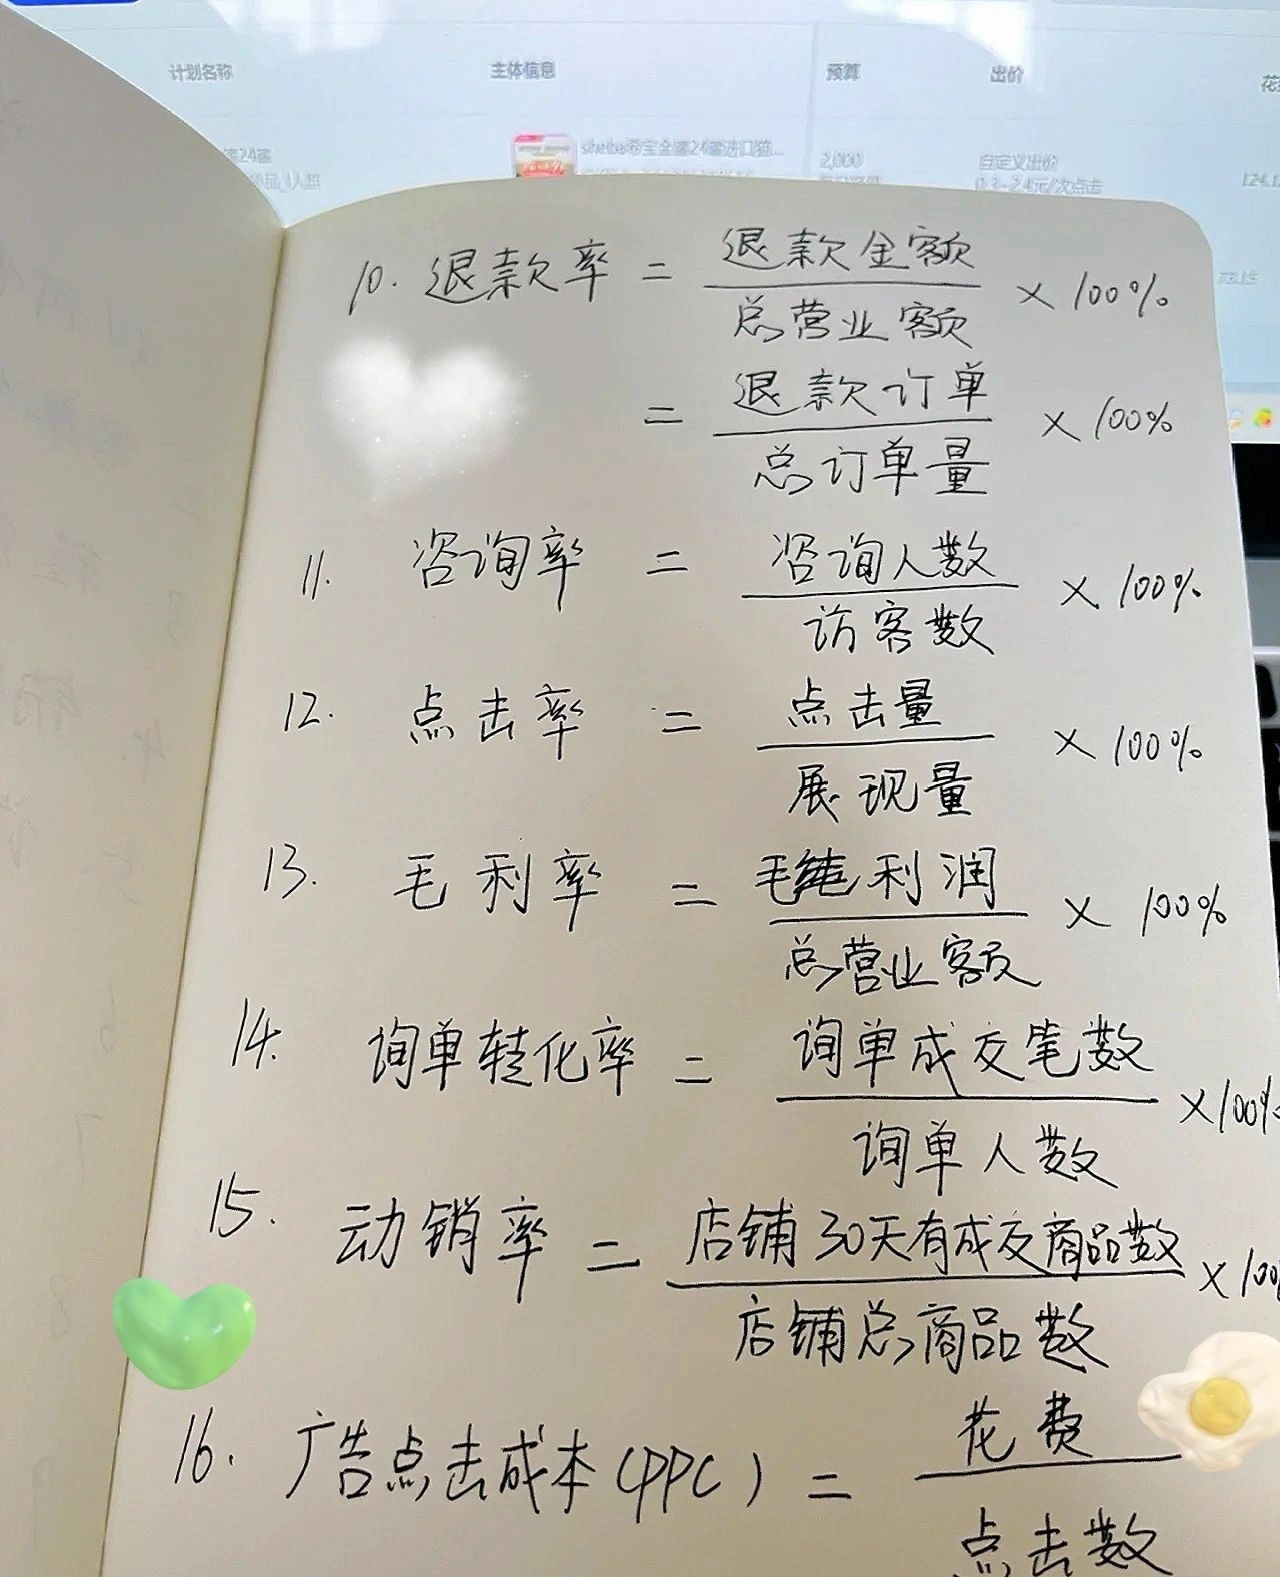 计划名称 主体信息 预算 出价
sheba希宝金罐24罐进口猫... 2,000 自定义出价
10. 退款率 = 退款金额 / 总营业额 × 100%
= 退款订单 / 总订单量 × 100%
11. 咨询率 = 咨询人数 / 访客数 × 100%
12. 点击率 = 点击量 / 展现量 × 100%
13. 毛利率 = 毛利润 / 总营业额 × 100%
14. 询单转化率 = 询单成交笔数 / 询单人数 ×100%
15. 动销率 = 店铺30天有成交商品数 / 店铺总商品数 ×100
16. 广告点击成本(PPC) = 花费 / 点击数